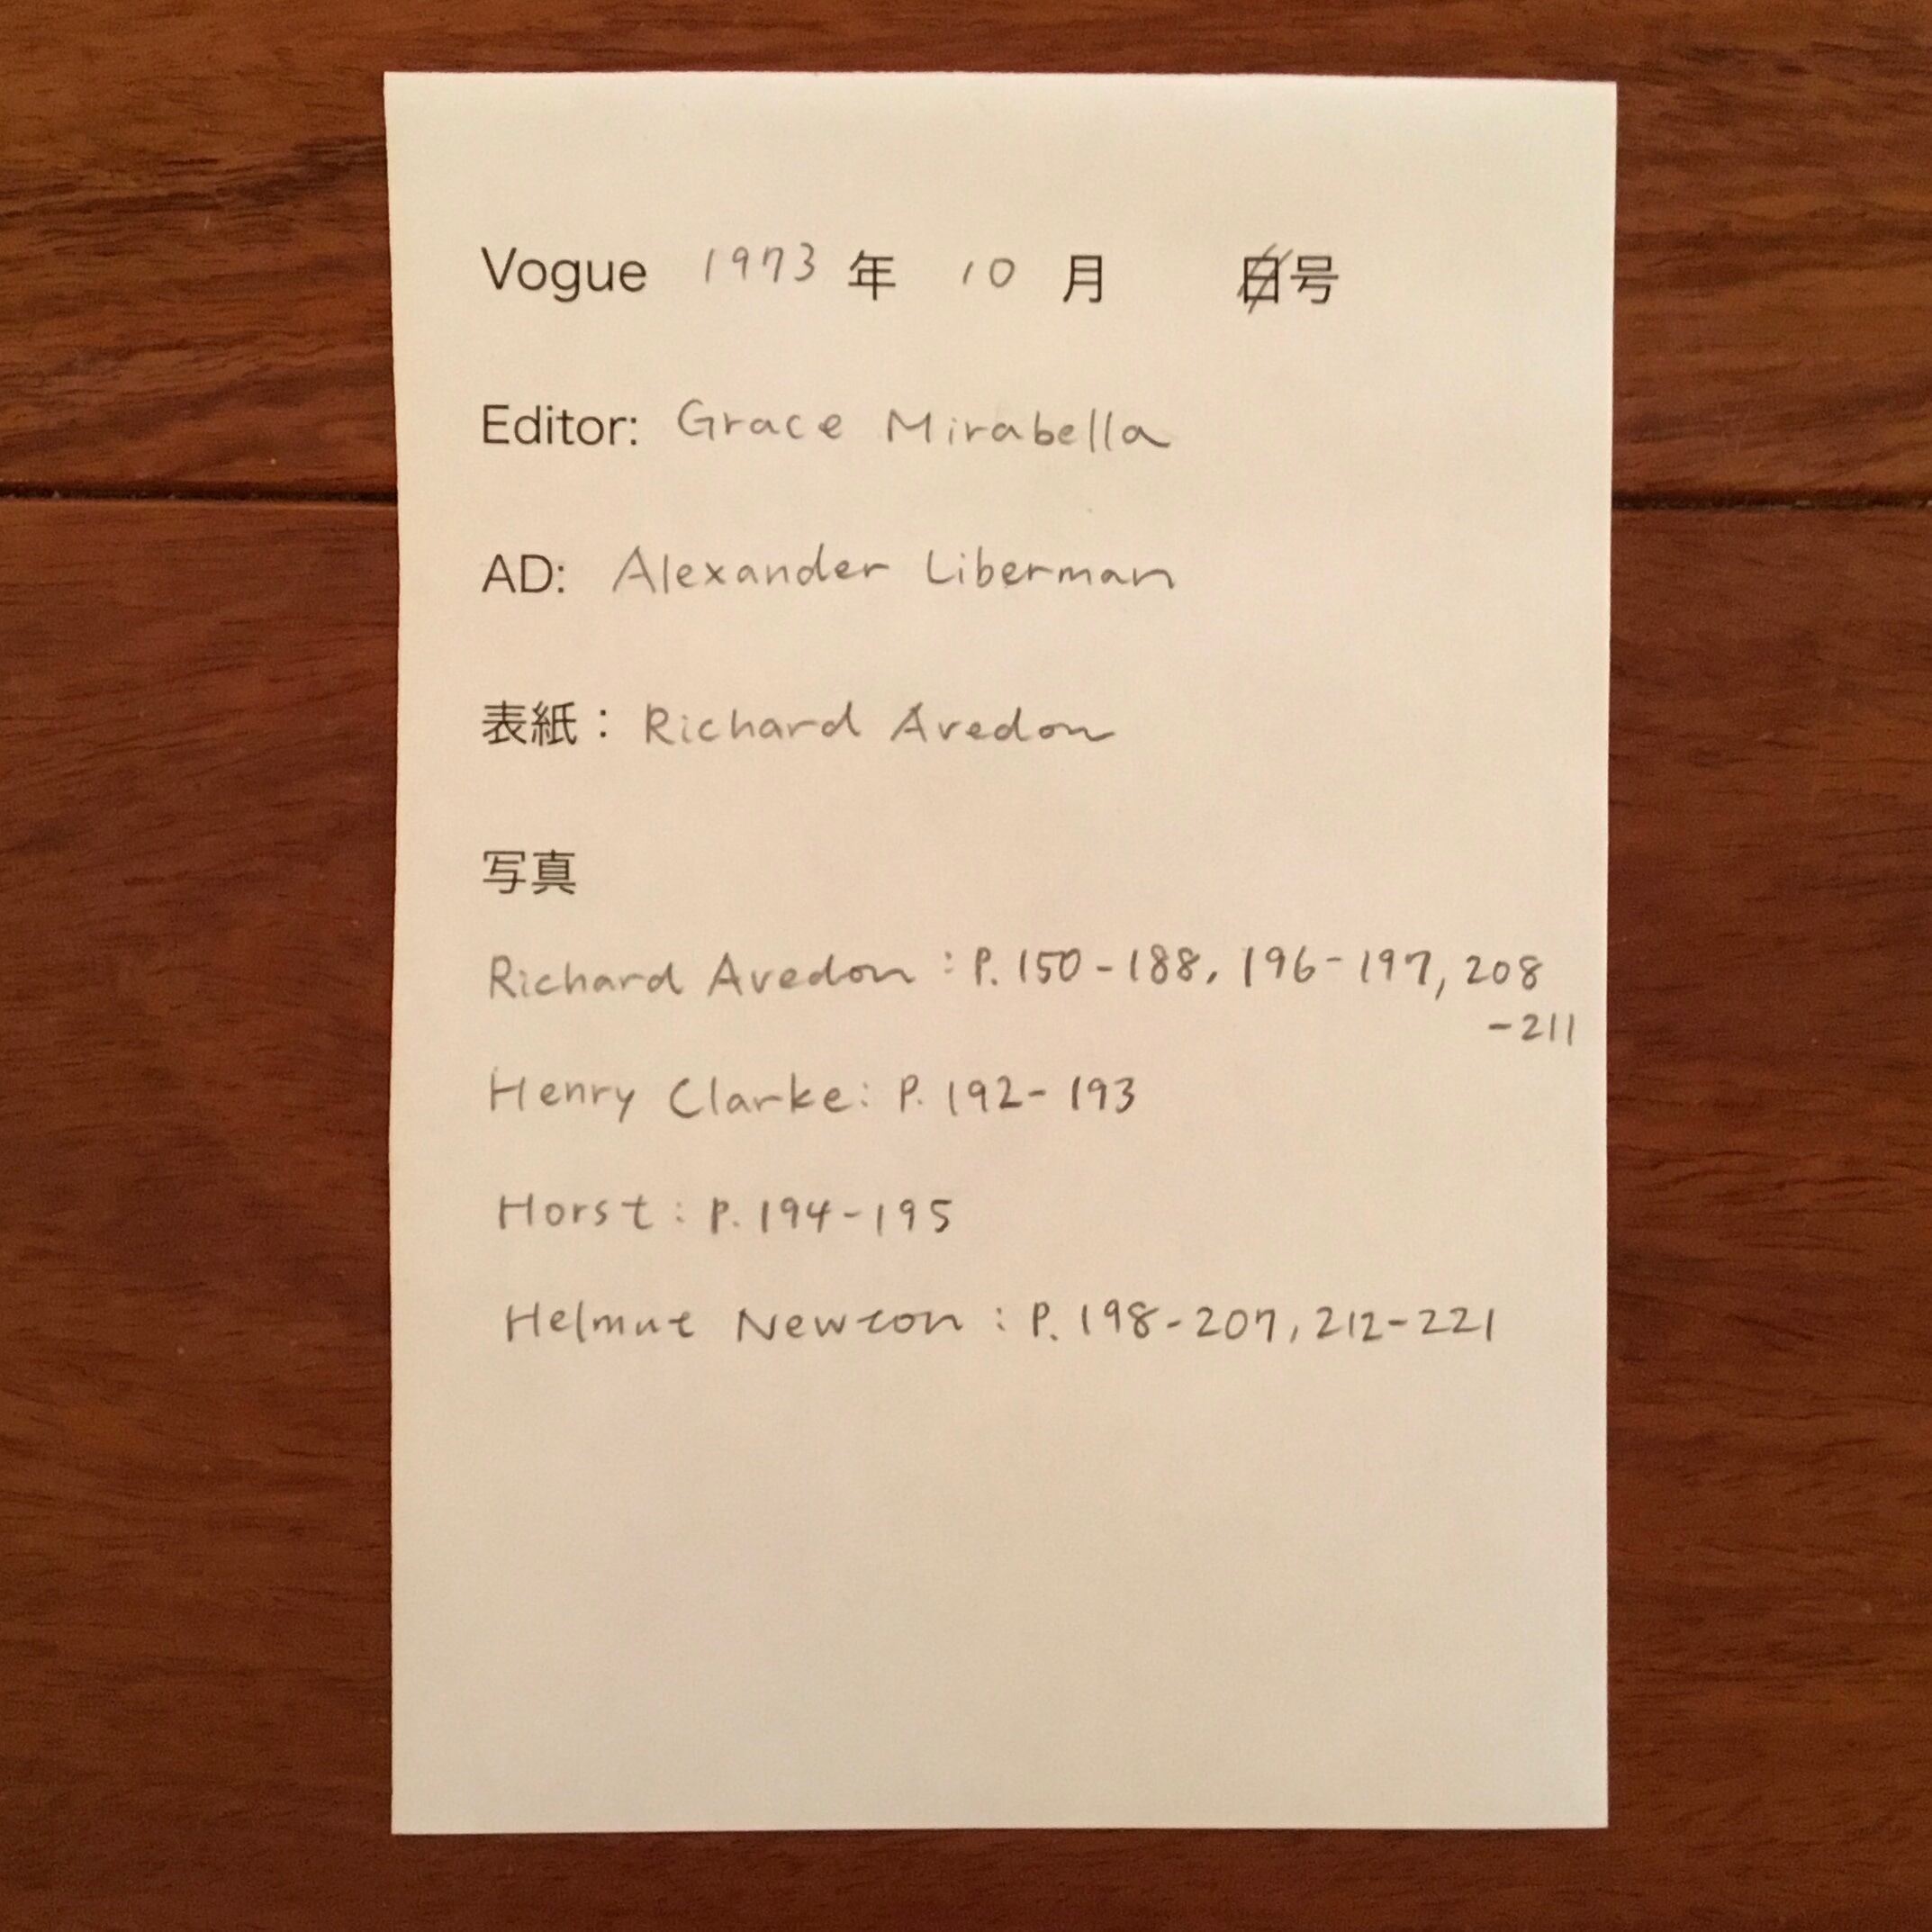 Vogue 1973 年 10 月 日号
Editor: Grace Mirabella
AD: Alexander Liberman
表紙：Richard Avedon
写真
Richard Avedon : P. 150-188, 196-197, 208
-211
Henry Clarke: P. 192-193
Horst: P. 194-195
Helmut Newton : P. 198-207, 212-221